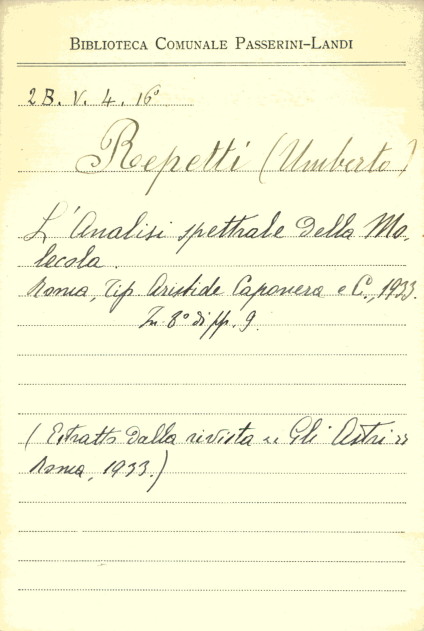 BIBLIOTECA COMUNALE PASSERINI-LANDI
2B. V. 4. 16°
Repetti (Umberto)
L'Analisi spettrale della Mo-
lecola.
Roma, Tip. Aristide Caponera e C., 1933.
In 8° di pp. 9.
(Estratto dalla rivista «Gli Astri»
Roma, 1933.)